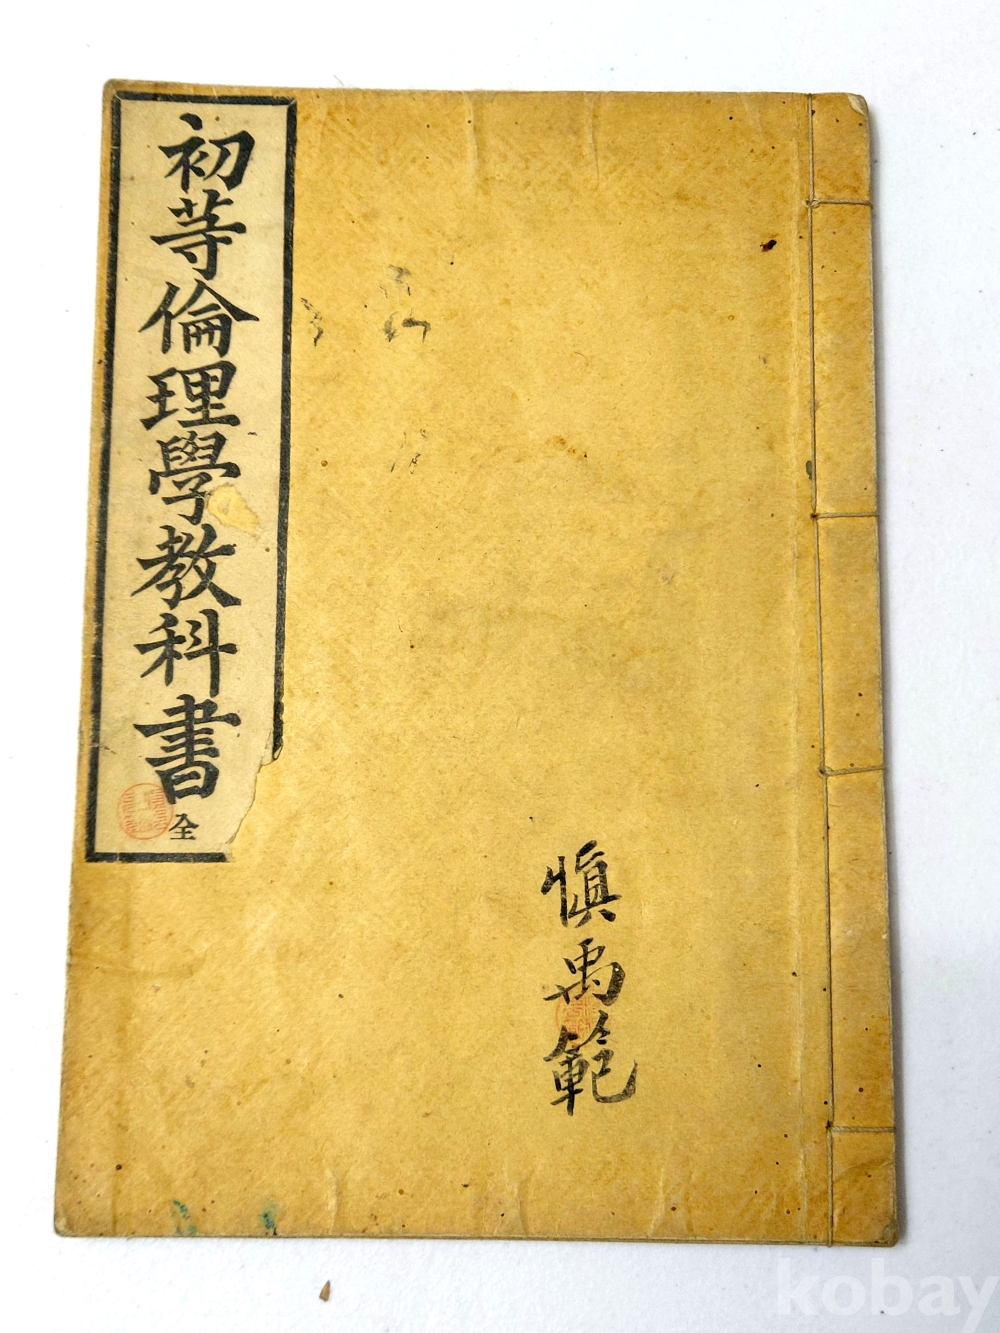 初等倫理學敎科書
全
愼禹範
kobay